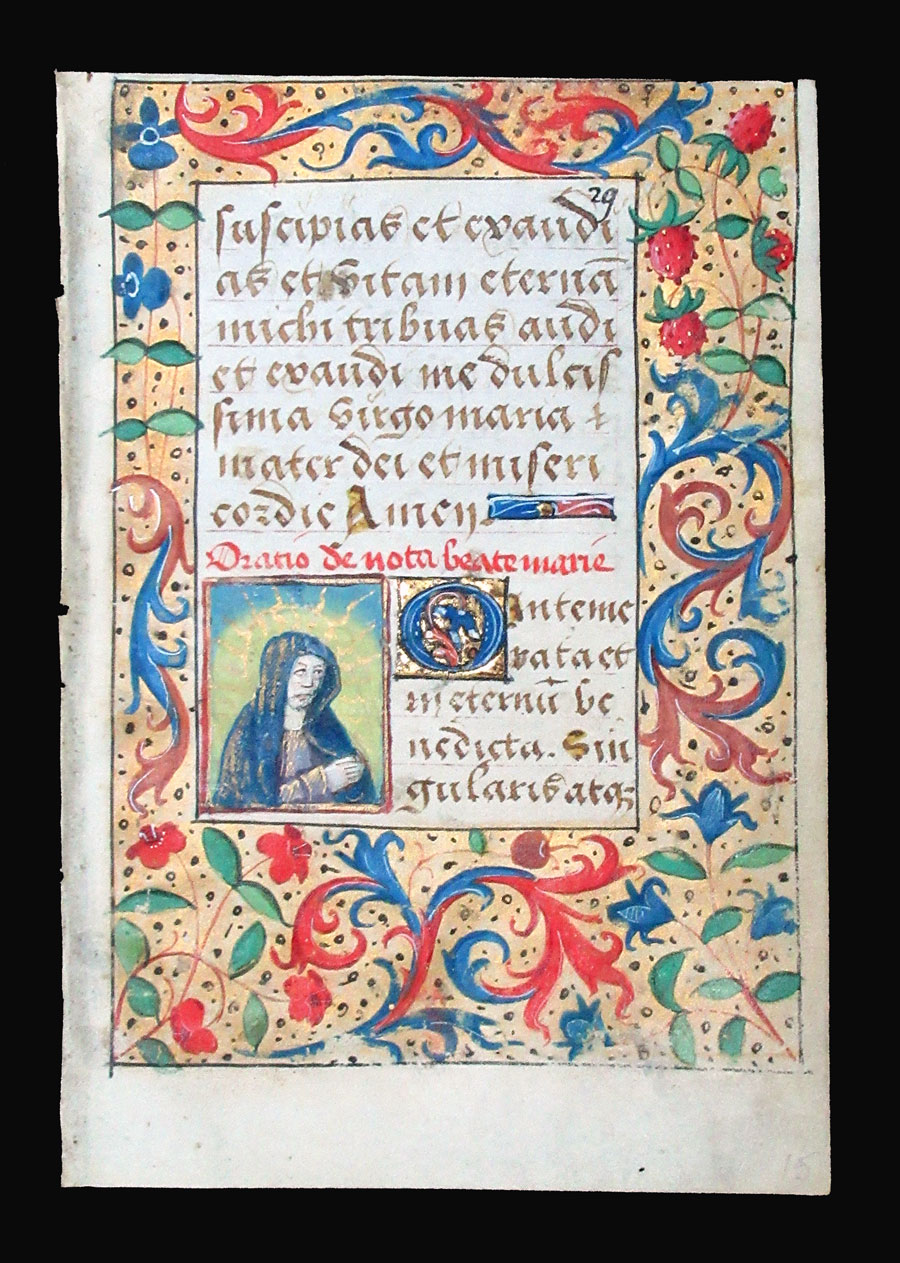 29
suscipias et exaudi
as et vitam eternā
michi tribuas audi
et exaudi me dulcis
sima virgo maria &
mater dei et miseri
cordie Amen
Oratio de nota beate marie
O Inteme
rata et
in eternū be
nedicta. Sin
gularis atqꝫ
15